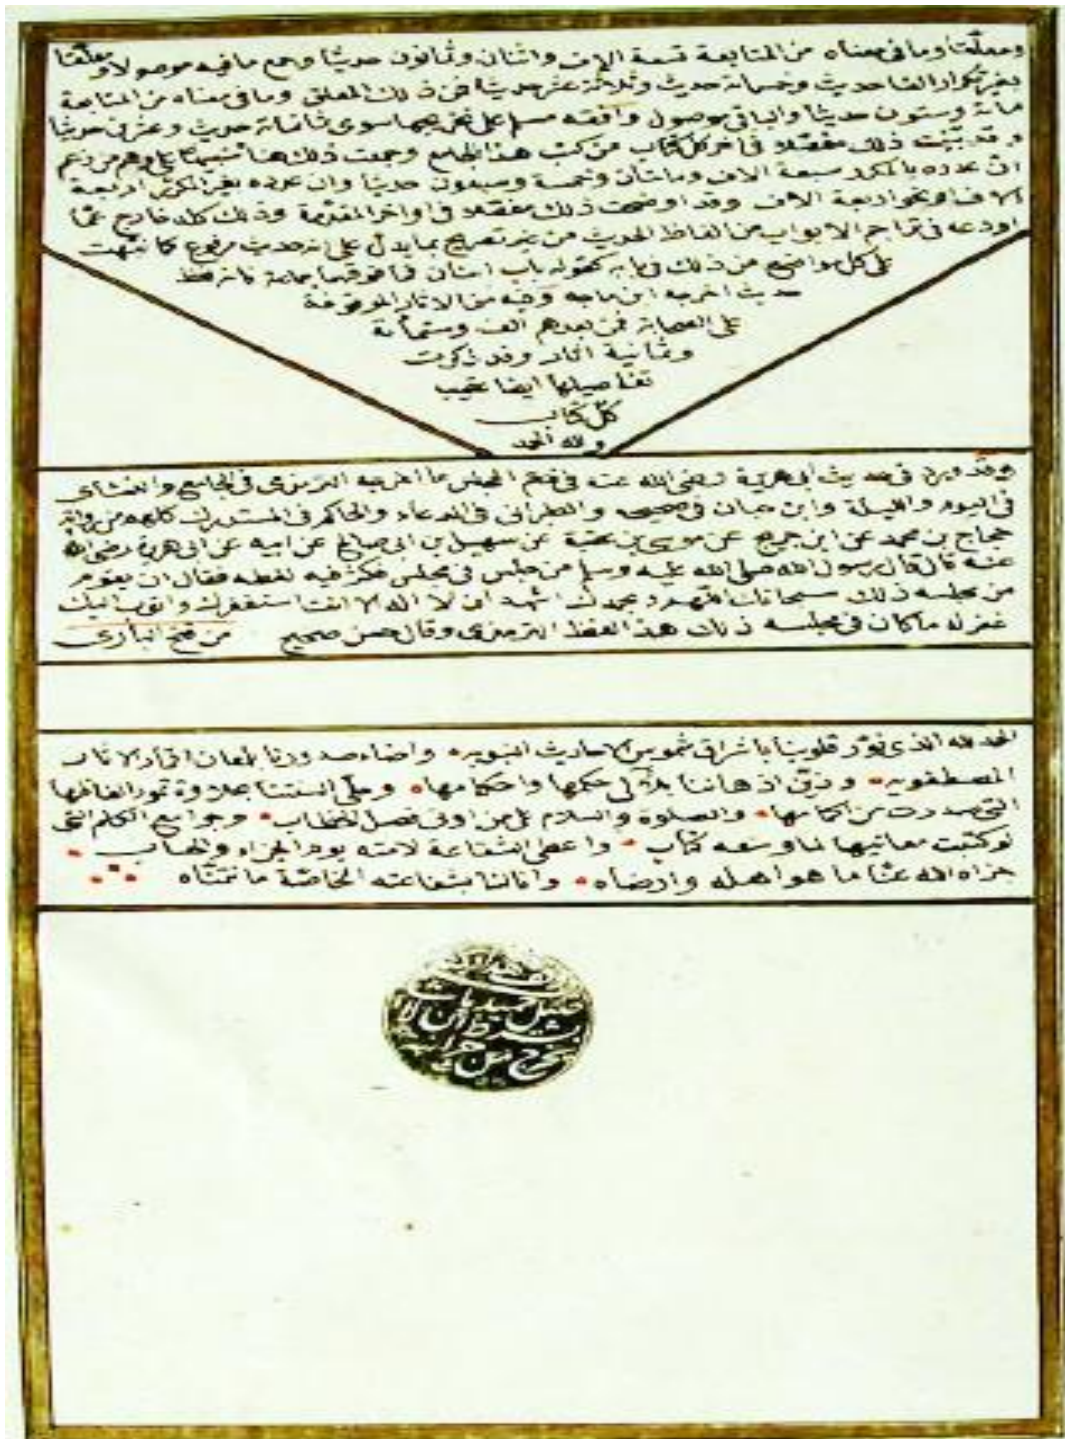 ومعلقا وما في معناه من المتابعة تسعة الاف واثنان وثمانون حديثا وجميع ما فيه موصولا ومعلقا
بغير تكرار الفا حديث وخمسمائة حديث وثلاثة عشر حديثا فمن ذلك المعلق وما في معناه من المتابعة
مائة وستون حديثا والباقي موصول وافقه مسلم على تخريجها سوى ثمانمائة حديث وعشرين حديثا
وقد بينت ذلك مفصلا في اخر كل كتاب من كتب هذا الجامع وجمعت ذلك هنا تنبيها على وهم من زعم
ان عدده بالمكرر سبعة الاف ومائتان وخمسة وسبعون حديثا وان عدده بغير المكرر اربعة
الاف او نحو اربعة الاف وقد اوضحت ذلك مفصلا في اواخر المقدمة وذلك كله خارج عما
اودعه في تراجم الابواب من الفاظ الحديث من غير تصريح بما يدل على انه حديث مرفوع كما نبهت
على كل مواضع من ذلك في بابه كقوله باب اثنان فما فوقهما جماعة فانه لفظ
حديث اخرجه ابن ماجه وفيه من الاثار الموقوفة
على الصحابة فمن بعدهم الف وستمائة
وثمانية اثار وقد ذكرت
تفاصيلها ايضا عقيب
كل كتاب
ولله الحمد
وقد ورد في حديث ابي هريرة رضي الله عنه في ختم المجلس ما اخرجه الترمذي في الجامع والنسائي
في اليوم والليلة وابن حبان في صحيحه والطبراني في الدعاء والحاكم في المستدرك كلهم من رواية
حجاج بن محمد عن ابن جريج عن موسى بن عقبة عن سهيل بن ابي صالح عن ابيه عن ابي هريرة رضي الله
عنه قال قال رسول الله صلى الله عليه وسلم من جلس في مجلس فكثر فيه لغطه فقال ان يقوم
من مجلسه ذلك سبحانك اللهم وبحمدك اشهد ان لا اله الا انت استغفرك واتوب اليك
غفر له ما كان في مجلسه ذلك هذا لفظ الترمذي وقال حسن صحيح من فتح الباري
الحمد لله الذي نور قلوبنا باشراق شموس الاحاديث النبويه واضاء صدورنا بلمعان اقمار الاثار
المصطفويه وزين اذهاننا بلآلي حكمها واحكامها وحلى السنتنا بحلاوة ثمور الفاظها
التي بدرت من اكمامها والصلوة والسلام على من اوتي فصل الخطاب وجوامع الكلم التي
لو كتبت معانيها لما وسعه كتاب واعطي الشفاعة لامته يوم الجزاء والحساب
جزاه الله عنا ما هو اهله وارضاه وانالنا بشفاعته الخاصة ما نتمناه